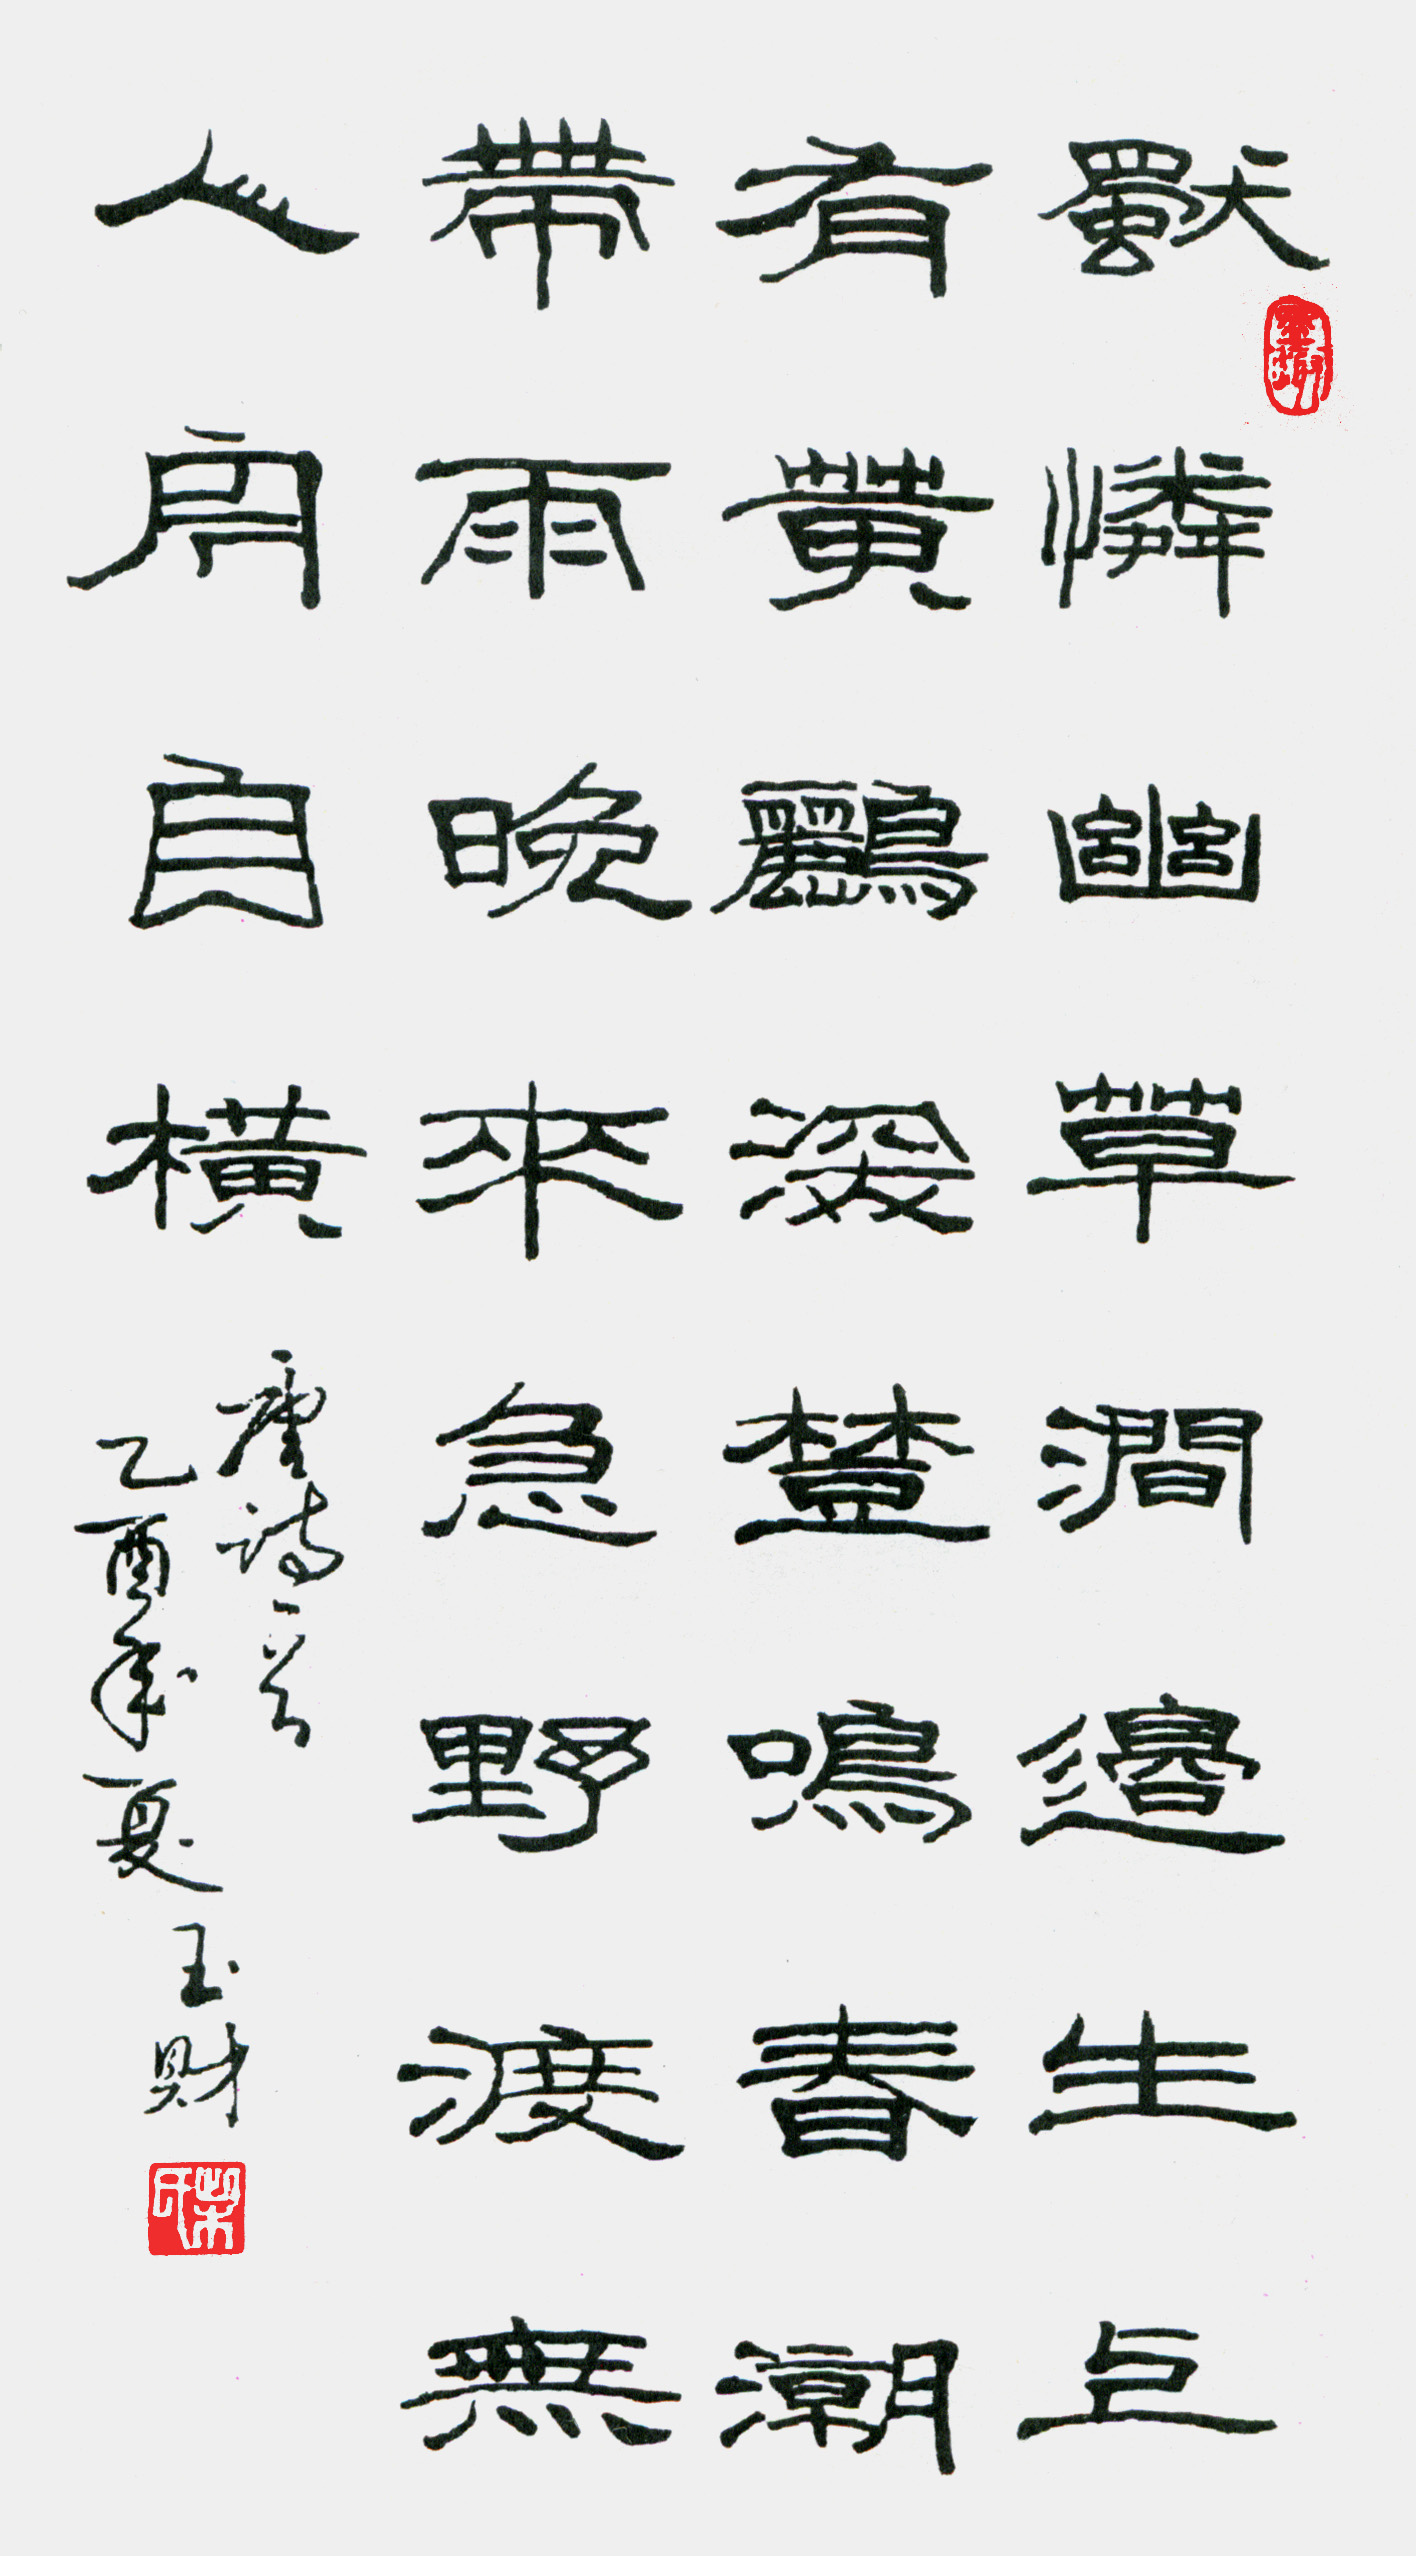 獨憐幽草澗邊生上
有黃鸝深楚鳴春潮
帶雨晚來急野渡無
人舟自橫
唐詩一首
乙酉年夏
玉財